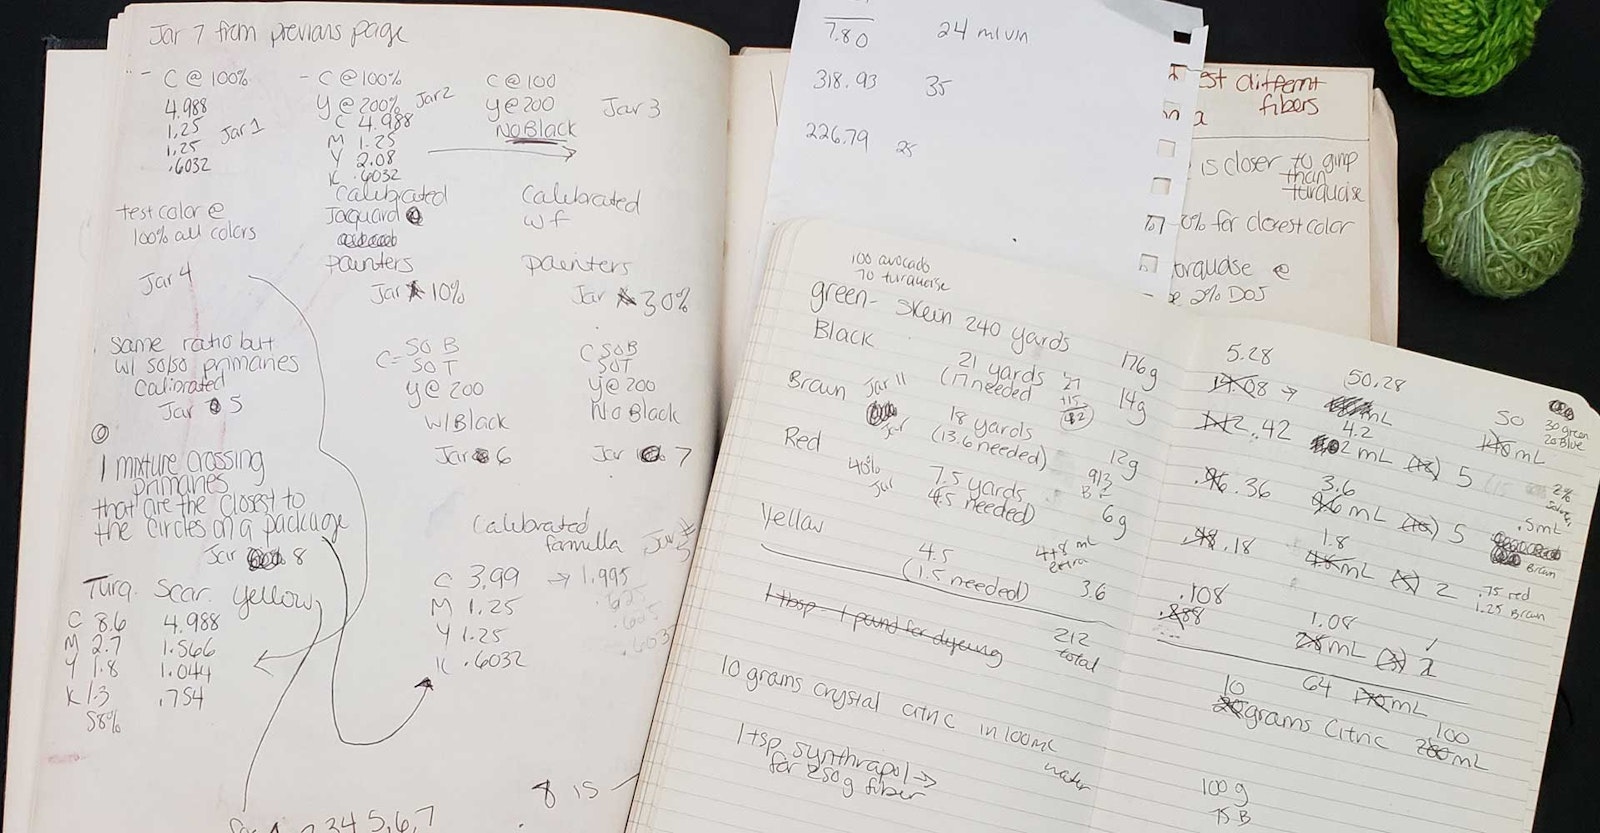 Jar 7 from previous page
- C @ 100%
4.988
1.25
1.25
.6032
Jar 1
- C @ 100%
y @ 200%
Jar 2
C 4.988
M 1.25
Y 2.08
K .6032
Calibrated
Jaquard
painters
C @ 100
y @ 200
No Black
Jar 3
Calibrated
w f
painters
test color @
100% all colors
Jar 4
Jar 10%
Jar 30%
same ratio but
w/ 50/50 primaries
Calibrated
Jar 5
C = 50 B
50 T
y @ 200
w/ Black
Jar 6
C 50 B
50 T
y @ 200
No Black
Jar 7
1 mixture crossing
primaries
that are the closest to
the circles on a package
Jar 8
Turq. Scar. yellow
C 8.6 4.988
M 2.7 1.566
Y 1.8 1.044
K 1.3 .754
58%
Calibrated
formulla
C 3.99 → 1.995
M 1.25 .625
Y 1.25 .625
K .6032
8 is
2 3 4 5, 6, 7
7.80 24 ml
318.93 35
226.79 25
est different
fibers
is closer to gimp
than
turquoise
0% for closest color
@
2% DOS
100 avocado
70 turquoise
green - skein 240 yards 176g
Black 21 yards 14g
(17 needed)
Brown Jar 11 18 yards 12g
(13.6 needed)
Red 7.5 yards 6g
40% Jar (4.5 needed)
Yellow 4.5 3.6
(1.5 needed)
1 tbsp - 1 pound for dyeing
212
total
10 grams crystal citric in 100mL
water
1 tsp synthrapol →
for 250g fiber
5.28
→ 50.28
mL
50
mL
30 green
20 Blue
.42 4.2
mL 5
.36 3.6
mL 5
.5mL
Brown
.18 1.8
mL 2
.75 red
1.25 Brown
.108 1.08
mL
64 mL
10
grams Citric 100
mL
100 g
75 B